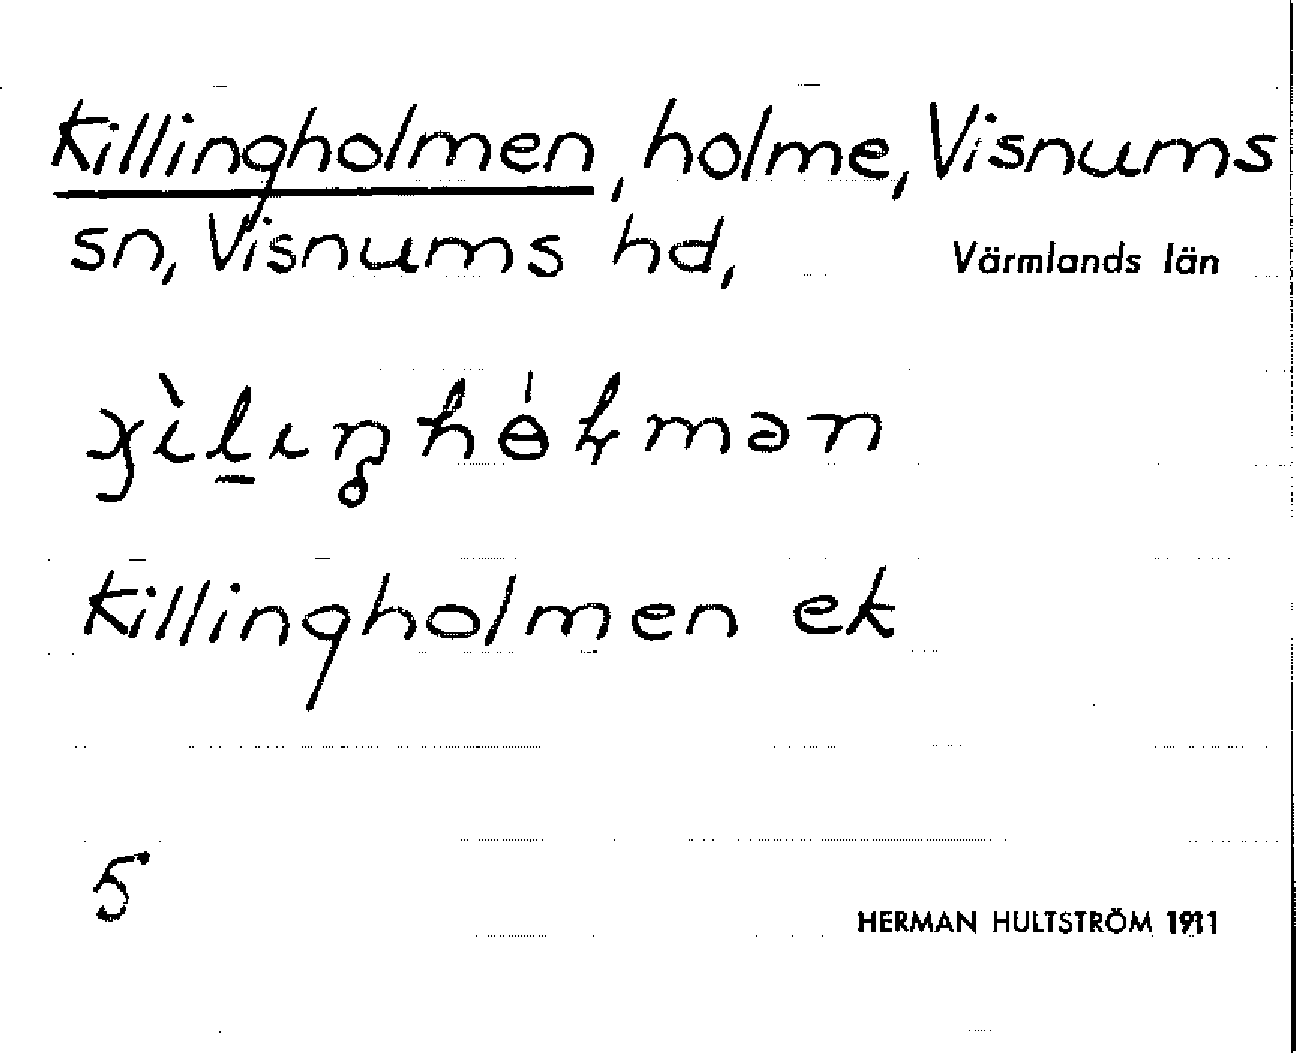 Killingholmen, holme, Visnums
sn, Visnums hd, Värmlands län
Killingholmen ek
5
HERMAN HULTSTRÖM 1911